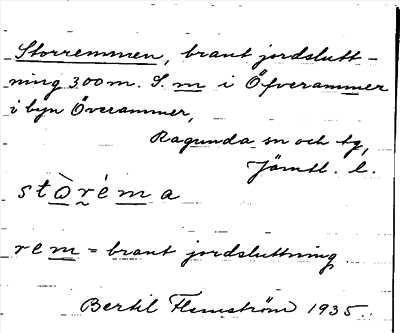 Storremmen, brant jordslutt-
ning 300 m. S. m i Öfverammer
i byn Överammer,
Ragunda sn och tg,
Jämtl. l.
stɷ̀ré m a
rem = brant jordsluttning
Bertil Flemström 1935.